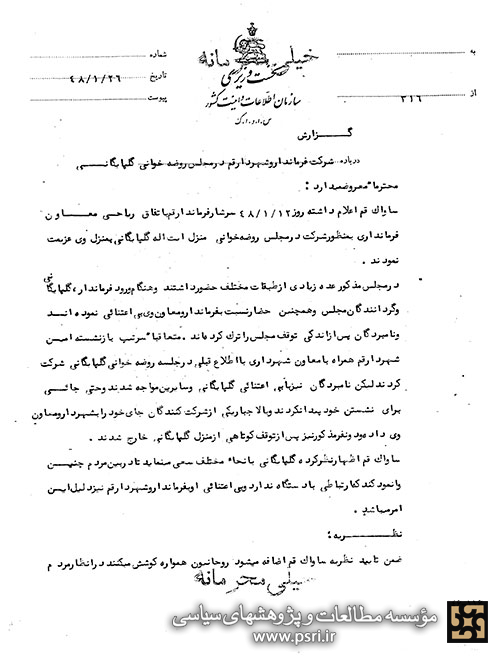 خیلی محرمانه
نخست وزیری
سازمان اطلاعات و امنیت کشور
س.ا.و.ا.ک
به
از ۳۱۶
شماره
تاریخ ۴۸/۱/۲۶
پیوست
گزارش
درباره شرکت فرماندار و شهردار قم در مجلس روضه خوانی گلپایگانی
محترما" معروضمیدارد :
ساواک قم اعلام داشته روز ۴۸/۱/۱۲ سرشار فرماندار قم باتفاق ریاحی معاون
فرمانداری بمنظور شرکت در مجلس روضه خوانی منزل آیت اله گلپایگانی بمنزل وی عزیمت
نمودند .
در مجلس مذکور عده زیادی از طبقات مختلف حضور داشتند و هنگام ورود فرماندار، گلپایگانی
و گردانندگان مجلس و همچنین حضار نسبت بفرماندار و معاون وی بی اعتنائی نموده اند
و نامبردگان پس از اندکی توقف مجلس را ترک کرده اند. متعاقبا" سرتیپ بازنشسته امین
شهردار قم همراه با معاون شهرداری با اطلاع قبلی در جلسه روضه خوانی گلپایگانی شرکت
کردند لیکن نامبردگان نیز با بی اعتنائی گلپایگانی و سایرین مواجه شدند و حتی جائی
برای نشستن خود پیدا نکردند و بالاجبار یکی از شرکت کنندگان جای خود را بشهردار و معاون
وی داده و دو نفر مذکور نیز پس از توقف کوتاهی از منزل گلپایگانی خارج شدند .
ساواک قم اظهار نظر کرده گلپایگانی بانحاء مختلف سعی مینماید تا در بین مردم چنین
وانمود کند که ارتباطی با دستگاه ندارد و بی اعتنائی او بفرماندار و شهردار قم نیز دلیل این
امر میباشد .
نظریه :
ضمن تایید نظریه ساواک قم اضافه میشود روحانیون همواره کوشش میکنند در انظار مردم
خیلی محرمانه
مؤسسه مطالعات و پژوهشهای سیاسی
www.psri.ir